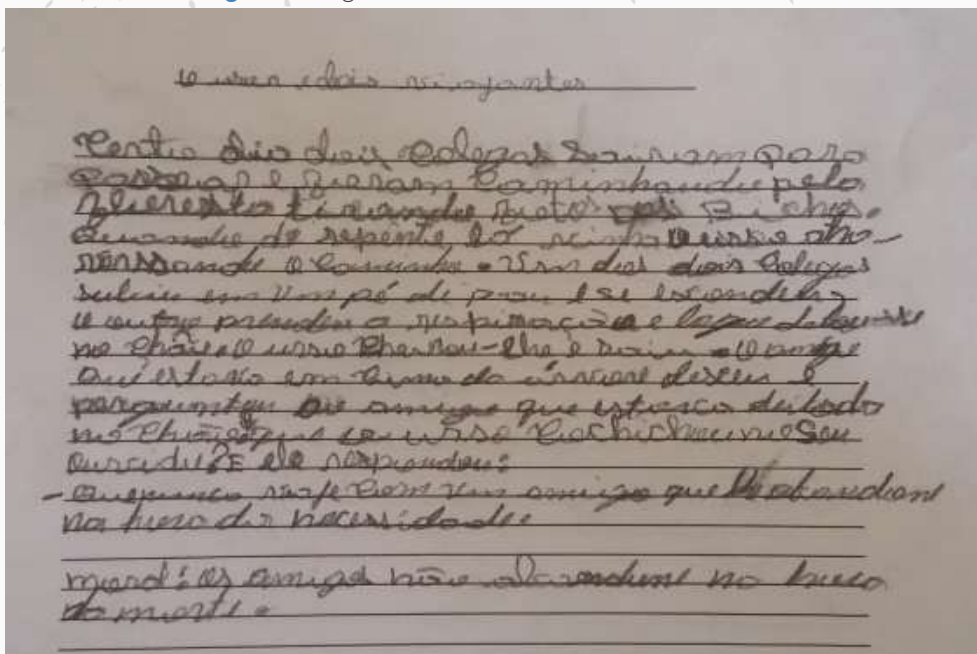 O urso e dois viajantes
Certo dia dois colegas sairam para
passear e fieram caminhandu pelo
tirando foto dos Bichos.
Quando de repente lá vinha o urso atra-
vessando o caminho. Um dos dois colegas
subiu em um pé di pau e se escondeu,
o outro prendeu a respiração e
no chão. O urso cheirou-lhe e saiu. O amigo
qui estava em cima da árvore desceu e
perguntou ao amigo que estava deitado
no chão: que o urso cochichou no seu
ouvidu? E ele respondeu:
- com um amigo que
na hora da necessidade
moral: os amigos não no hora
da morte.